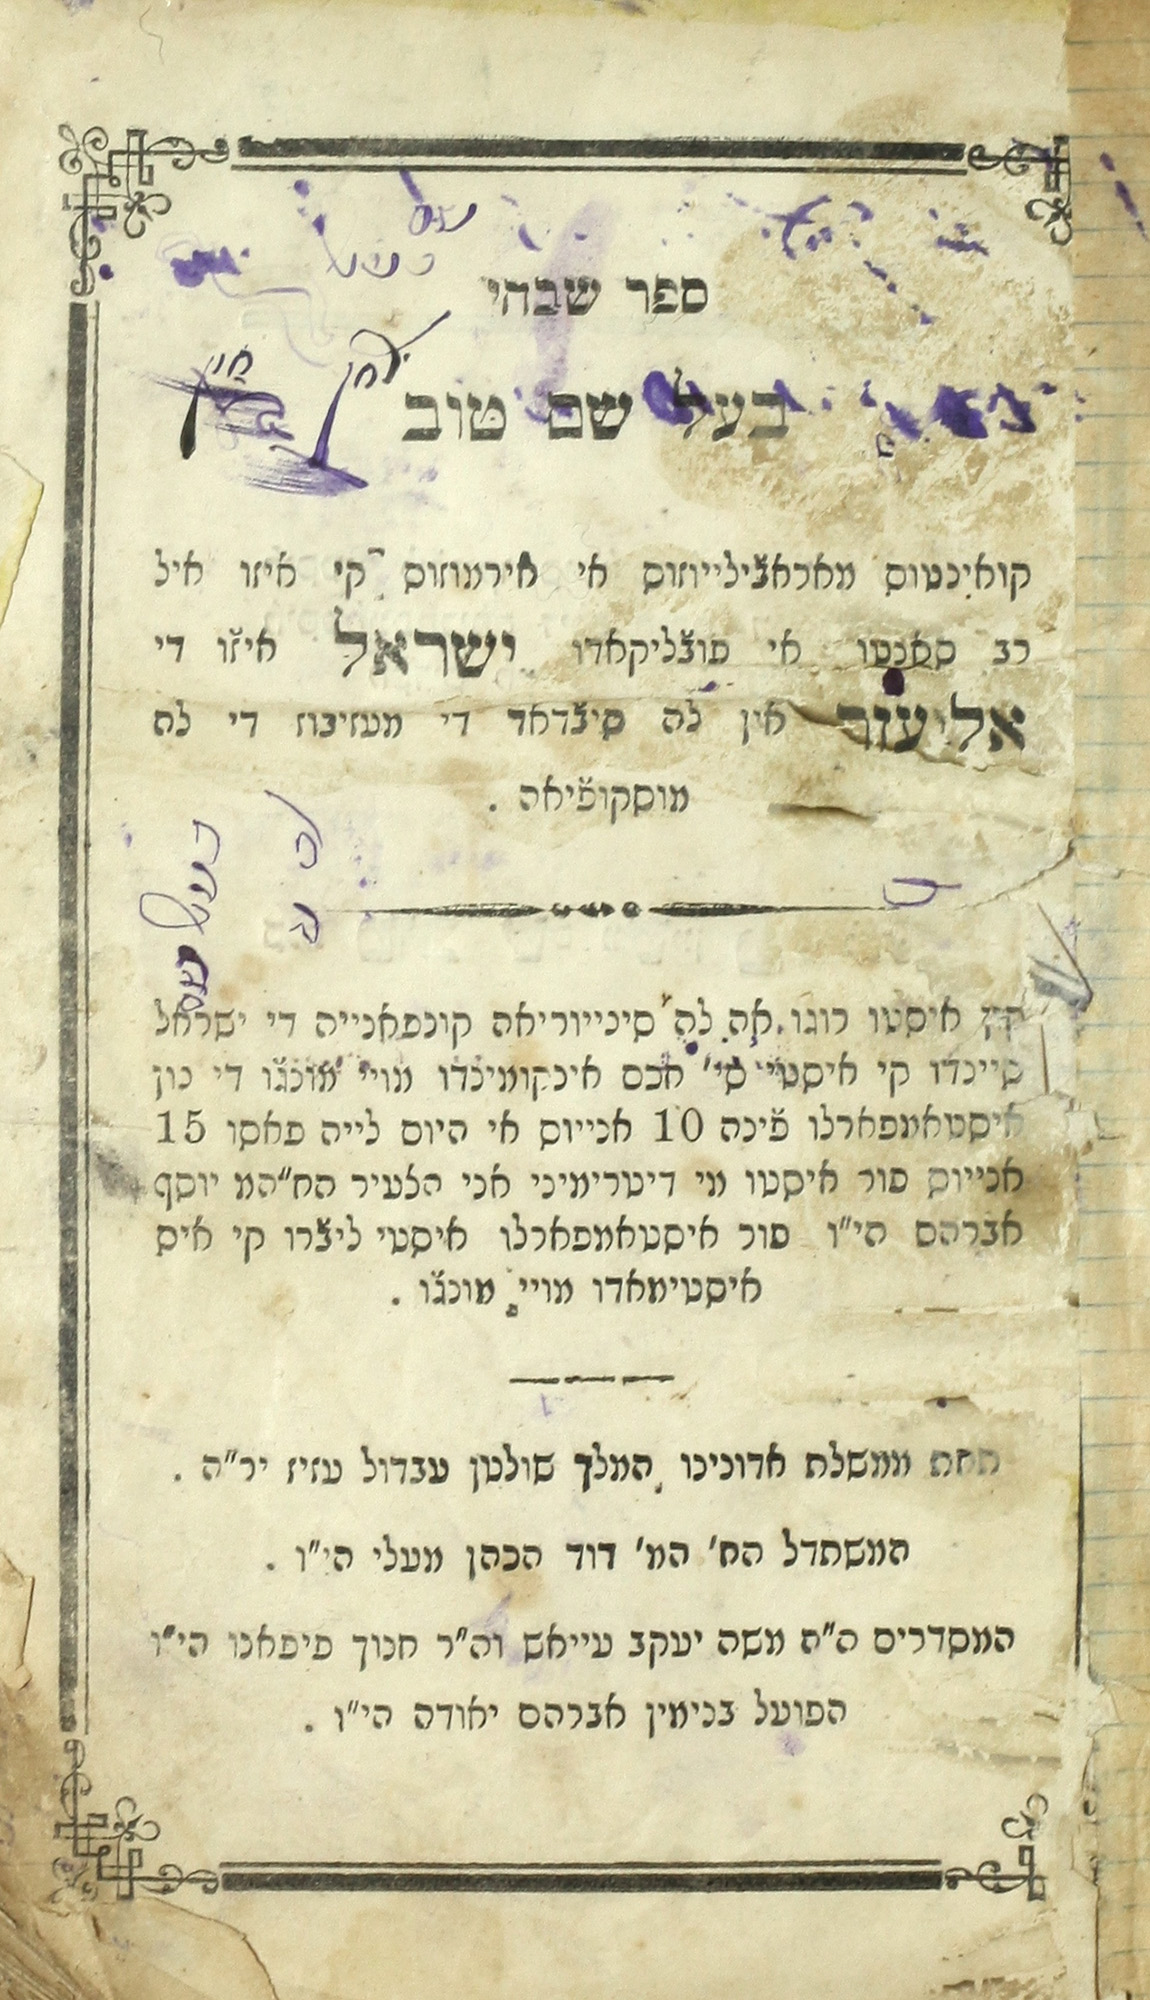 ספר שבחי
בעל שם טוב
קואינטוס מאראב֘ילייוזוס אי אירמוזוס קי איזו איל
רב סאנטו אי פוב֘ליקאדו ישראל איז֘ו די
אליעזר אין לה סיב֘דאד די מעזיבוז די לה
מוסקופ֘יאה .
איסטו רוגו אה לה סינייוריאה קונפאנייה די ישראל
סיינדו קי איסטי ס׳ חכם אינקומינדו מויי מונג֘ו די נון
איסטאמפארלו פ֘ינה 10 אנייוס אי היום לייה פאסו 15
אנייוס פור איסטו מי דיטרימיני אני הצעיר הח״המ יוסף
אברהם הי״ו פור איסטאמפארלו איסטי ליב֘רו קי איס
איסטימאדו מויי מונג֘ו .
תחת ממשלת אדונינו המלך שולטן עבדול עזיז יר״ה .
המשתדל הח׳ המ׳ דוד הכהן מעלי הי״ו .
המסדרים ה״ח משה יעקב עייאש וה״ר חנוך פיפאנו הי״ו
הפועל בנימין אברהם יאודה הי״ו .